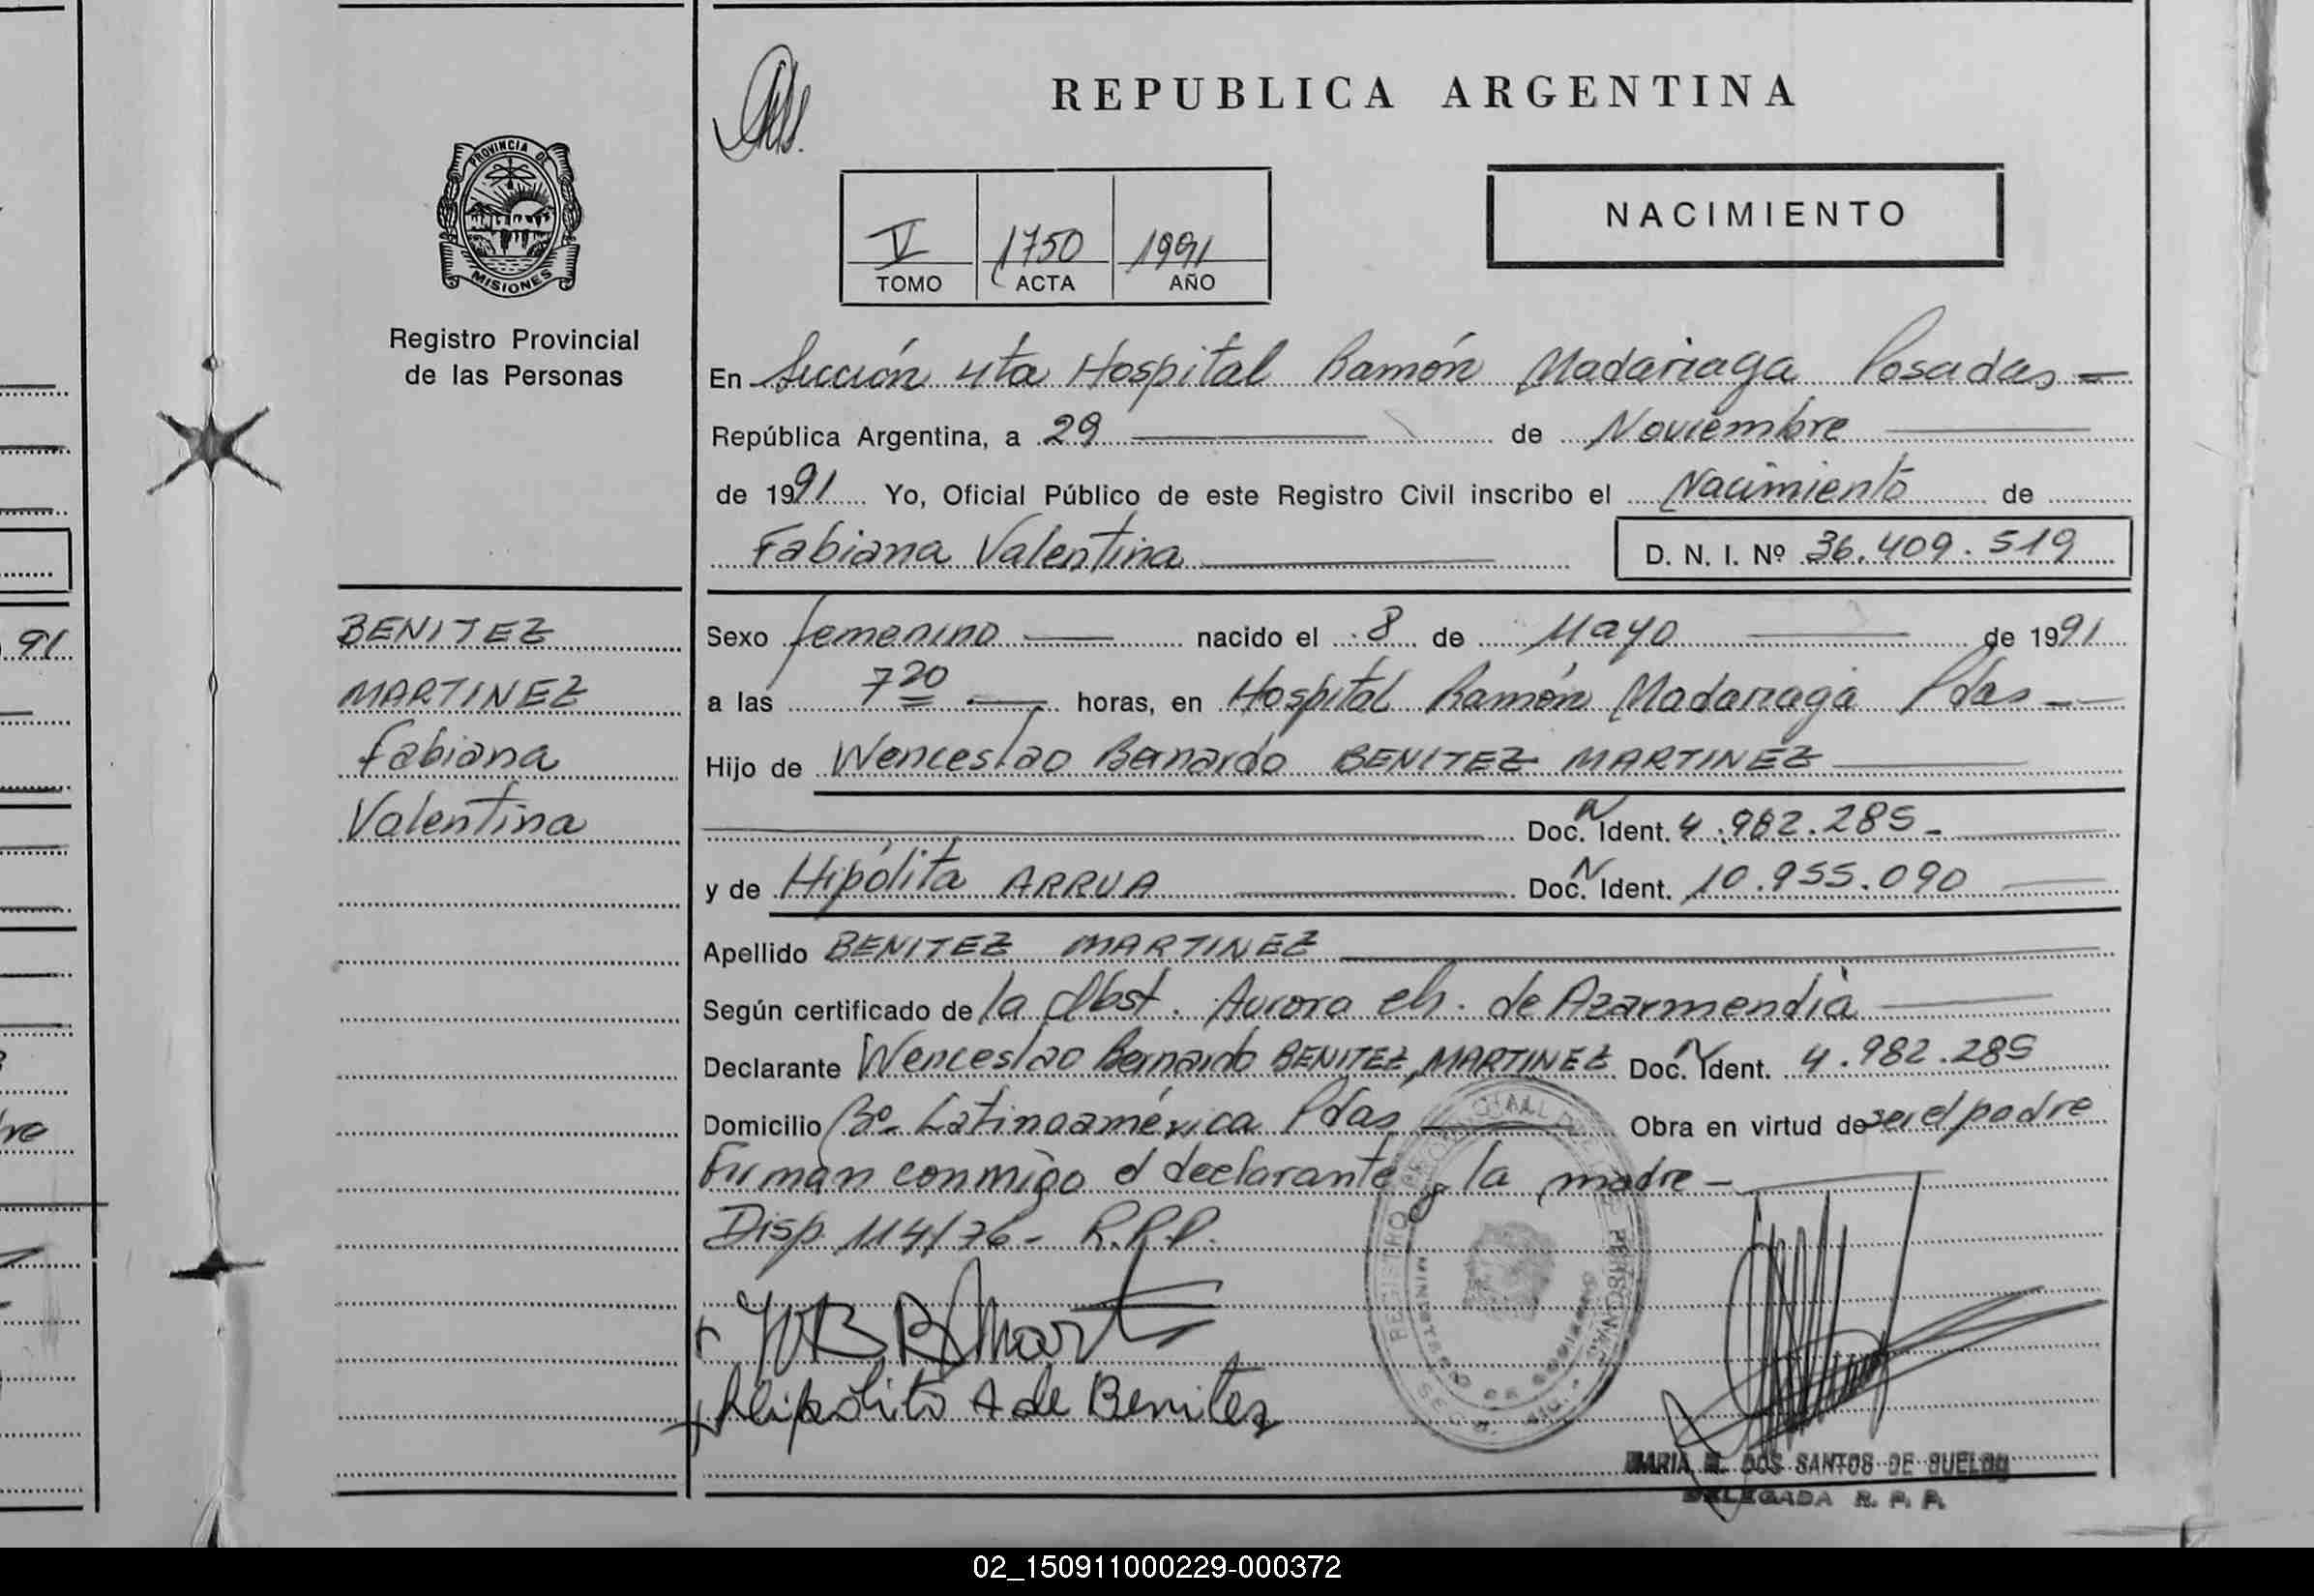 REPUBLICA ARGENTINA
PROVINCIA DE
MISIONES
Registro Provincial
de las Personas
V 1750 1991
TOMO ACTA AÑO
NACIMIENTO
En Sección 4ta Hospital Ramón Madariaga Posadas
República Argentina, a 29 de Noviembre
de 1991 Yo, Oficial Público de este Registro Civil inscribo el Nacimiento de
Fabiana Valentina D. N. I. Nº 36.409.519
BENITEZ
MARTINEZ
Fabiana
Valentina
Sexo femenino nacido el 8 de Mayo de 1991
a las 7 20 horas, en Hospital Ramón Madariaga Pdas
Hijo de Wenceslao Bernardo BENITEZ MARTINEZ
Doc. N Ident. 4.982.285
y de Hipólita ARRUA Doc. N Ident. 10.955.090
Apellido BENITEZ MARTINEZ
Según certificado de la Obst. Aurora Ch. de Azarmendia
Declarante Wenceslao Bernardo BENITEZ MARTINEZ Doc. N Ident. 4.982.285
Domicilio Bº Latinoamérica Pdas Obra en virtud de ser el padre
Firman conmigo el declarante y la madre
Disp. 114/76 - R.P.P.
Hipolita A de Benitez
REGISTRO PROVINCIAL DE LAS PERSONAS
MINISTERIO DE GOBIERNO
MARIA DOS SANTOS DE
DELEGADA R. P. P.
91
02_150911000229-000372